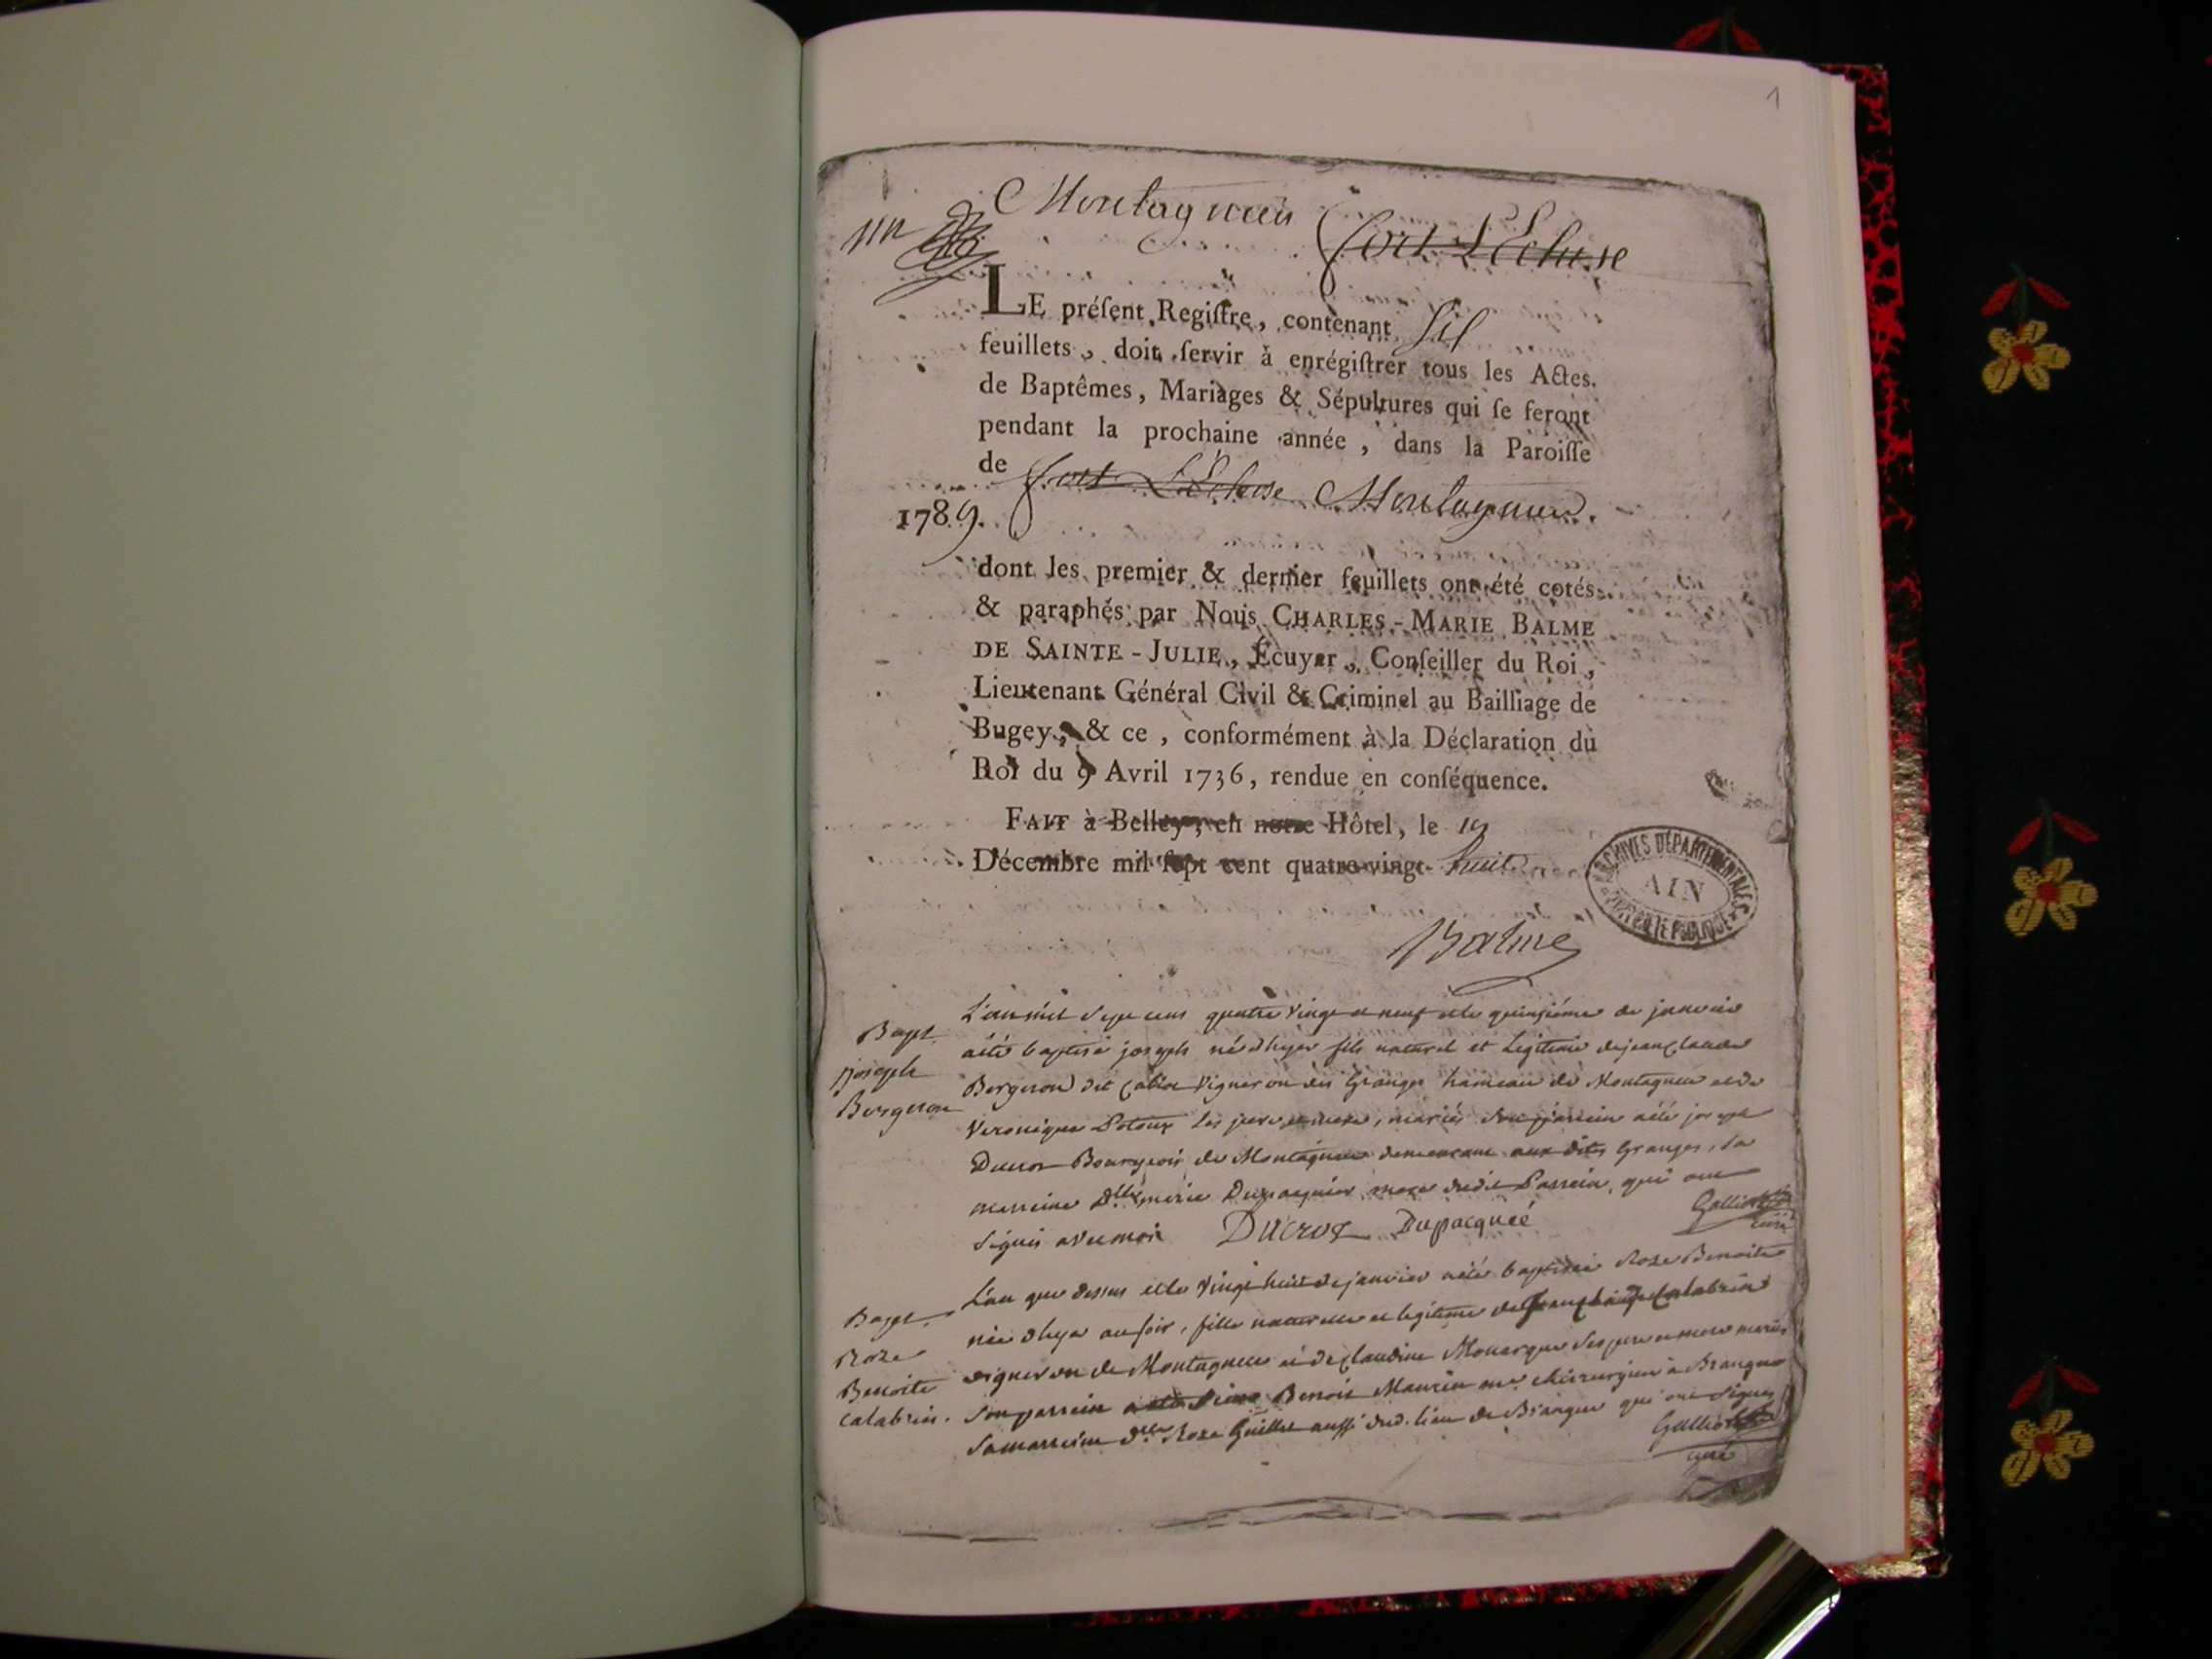 1
Montagnieu
Fort L'Ecluse
LE préſent Regiſtre, contenant six
feuillets, doit ſervir à enrégiſtrer tous les Actes.
de Baptêmes, Mariages & Sépultures qui ſe feront
pendant la prochaine année, dans la Paroiſſe
de fort L'Ecluse Montagnieu.
1789.
dont les premier & dernier feuillets ont été cotés
& paraphés par Nous CHARLES-MARIE BALME
DE SAINTE-JULIE, Écuyer, Conſeiller du Roi,
Lieutenant Général Civil & Criminel au Bailliage de
Bugey, & ce, conformément à la Déclaration du
Roi du 9 Avril 1736, rendue en conſéquence.
FAIT à Belley, en notre Hôtel, le 19
Décembre mil ſept cent quatre-vingt-huit
ARCHIVES DÉPARTEMENTALES
AIN
PROPRIÉTÉ PUBLIQUE
Balme
Bapt.
joseph
Bergeron
L'an mil sept cens quatre vingt et neuf et le quinzième de janvier
a été baptisé joseph né d'hyer fils naturel et legitime de jean claude
Bergeron dit vigneron des Granges hameau de Montagnieu et de
Veronique les pere et mere, mariés son parrein a été joseph
Ducros Bourgeois de Montagnieu demeurant aux dites Granges, sa
marreine Dlle marie Dupasquier mere dudit Parrein, qui ont
signés avec moi Ducroz Dupacquié
curé
Bapt.
Roze
Benoite
calabrin.
L'an que dessus et le vingt huit de janvier a été baptisée Roze Benoite
née d'hyer au soir, fille naturelle et legitime de jean claude Calabrin
vigneron de Montagnieu et de claudine Monarque ses pere et mere mariés
son parrein a été sieur Benoit Maurin me chirurgien à Brangue
sa marreine dlle Roze Guillet aussi dud. lieu de Brangue qui ont signés
curé